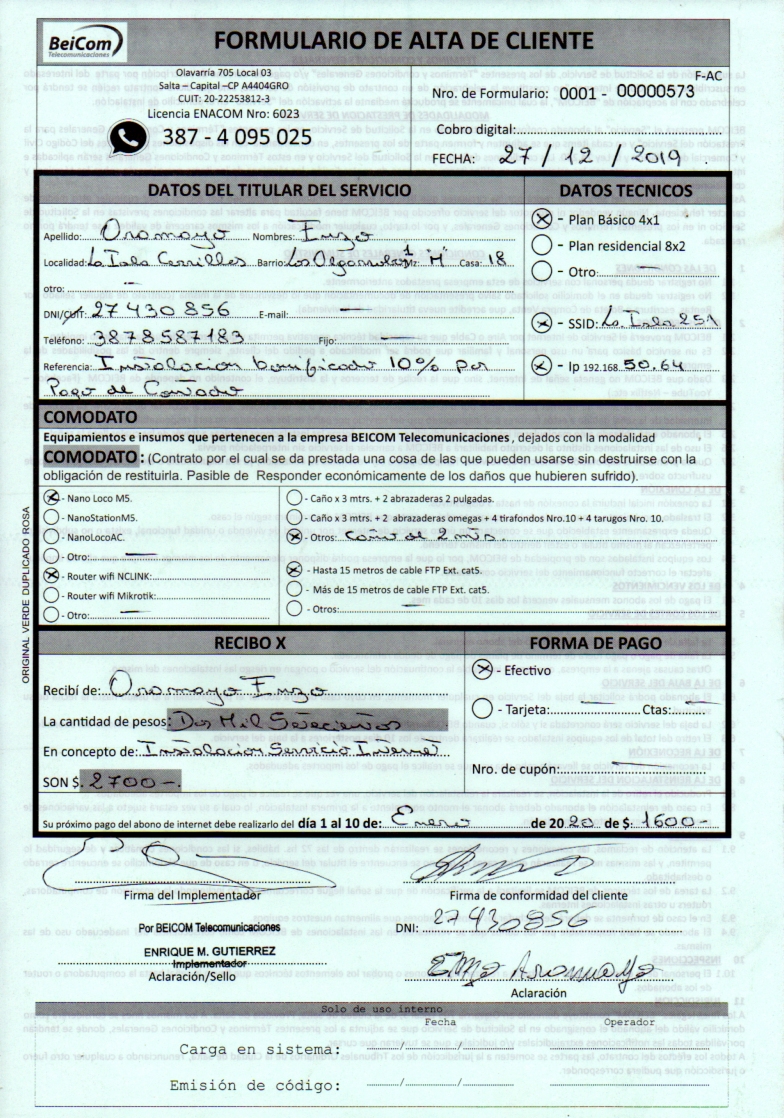 BeiCom
Telecomunicaciones
FORMULARIO DE ALTA DE CLIENTE
Olavarría 705 Local 03
Salta – Capital –CP A4404GRO
CUIT: 20-22253812-3
Licencia ENACOM Nro: 6023
387 - 4 095 025
F-AC
Nro. de Formulario: 0001 - 00000573
Cobro digital:
FECHA: 27 / 12 / 2019
DATOS DEL TITULAR DEL SERVICIO
Apellido: Oromayo Nombres: Enzo
Localidad: La Isla Cerrillos Barrio: Los Olgarrobos 1 Mz: "M" Casa: 18
otro: —
DNI/CUIT: 27 430 856 E-mail: —
Teléfono: 3878587183 Fijo: —
Referencia: Instalacion bonificado 10% por
Pago de Contado
DATOS TECNICOS
- Plan Básico 4x1
- Plan residencial 8x2
- Otro: —
- SSID: La Isla 251
- Ip 192.168. 50.64
COMODATO
Equipamientos e insumos que pertenecen a la empresa BEICOM Telecomunicaciones, dejados con la modalidad
COMODATO: (Contrato por el cual se da prestada una cosa de las que pueden usarse sin destruirse con la
obligación de restituirla. Pasible de Responder económicamente de los daños que hubieren sufrido).
- Nano Loco M5.
- NanoStationM5.
- NanoLocoAC.
- Otro: —
- Router wifi NCLINK:
- Router wifi Mikrotik:
- Otro: —
- Caño x 3 mtrs. + 2 abrazaderas 2 pulgadas.
- Caño x 3 mtrs. + 2 abrazaderas omegas + 4 tirafondos Nro.10 + 4 tarugos Nro. 10.
- Otros: Caño de 2 mts.
- Hasta 15 metros de cable FTP Ext. cat5.
- Más de 15 metros de cable FTP Ext. cat5.
- Otros: —
ORIGINAL VERDE DUPLICADO ROSA
RECIBO X
Recibí de: Oromayo Enzo
La cantidad de pesos: Dos Mil Setecientos
En concepto de: Instalacion Servicio Internet
SON $. 2700-.
FORMA DE PAGO
- Efectivo
- Tarjeta: — Ctas: —
Nro. de cupón: —
Su próximo pago del abono de internet debe realizarlo del día 1 al 10 de: Enero de 20 20 de $: 1600-
Firma del Implementador
Por BEICOM Telecomunicaciones
ENRIQUE M. GUTIERREZ
Implementador
Aclaración/Sello
Firma de conformidad del cliente
DNI: 27430856
Enzo Aromayo
Aclaración
Solo de uso interno
Fecha Operador
Carga en sistema: / /
Emisión de código: / /